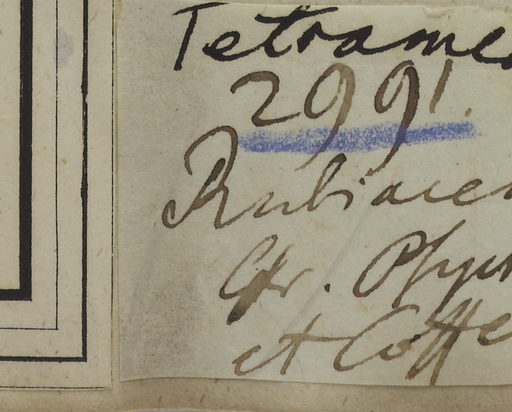 Tetrame
2991.
Rubiacea
Cfr. Psych
et Coffe